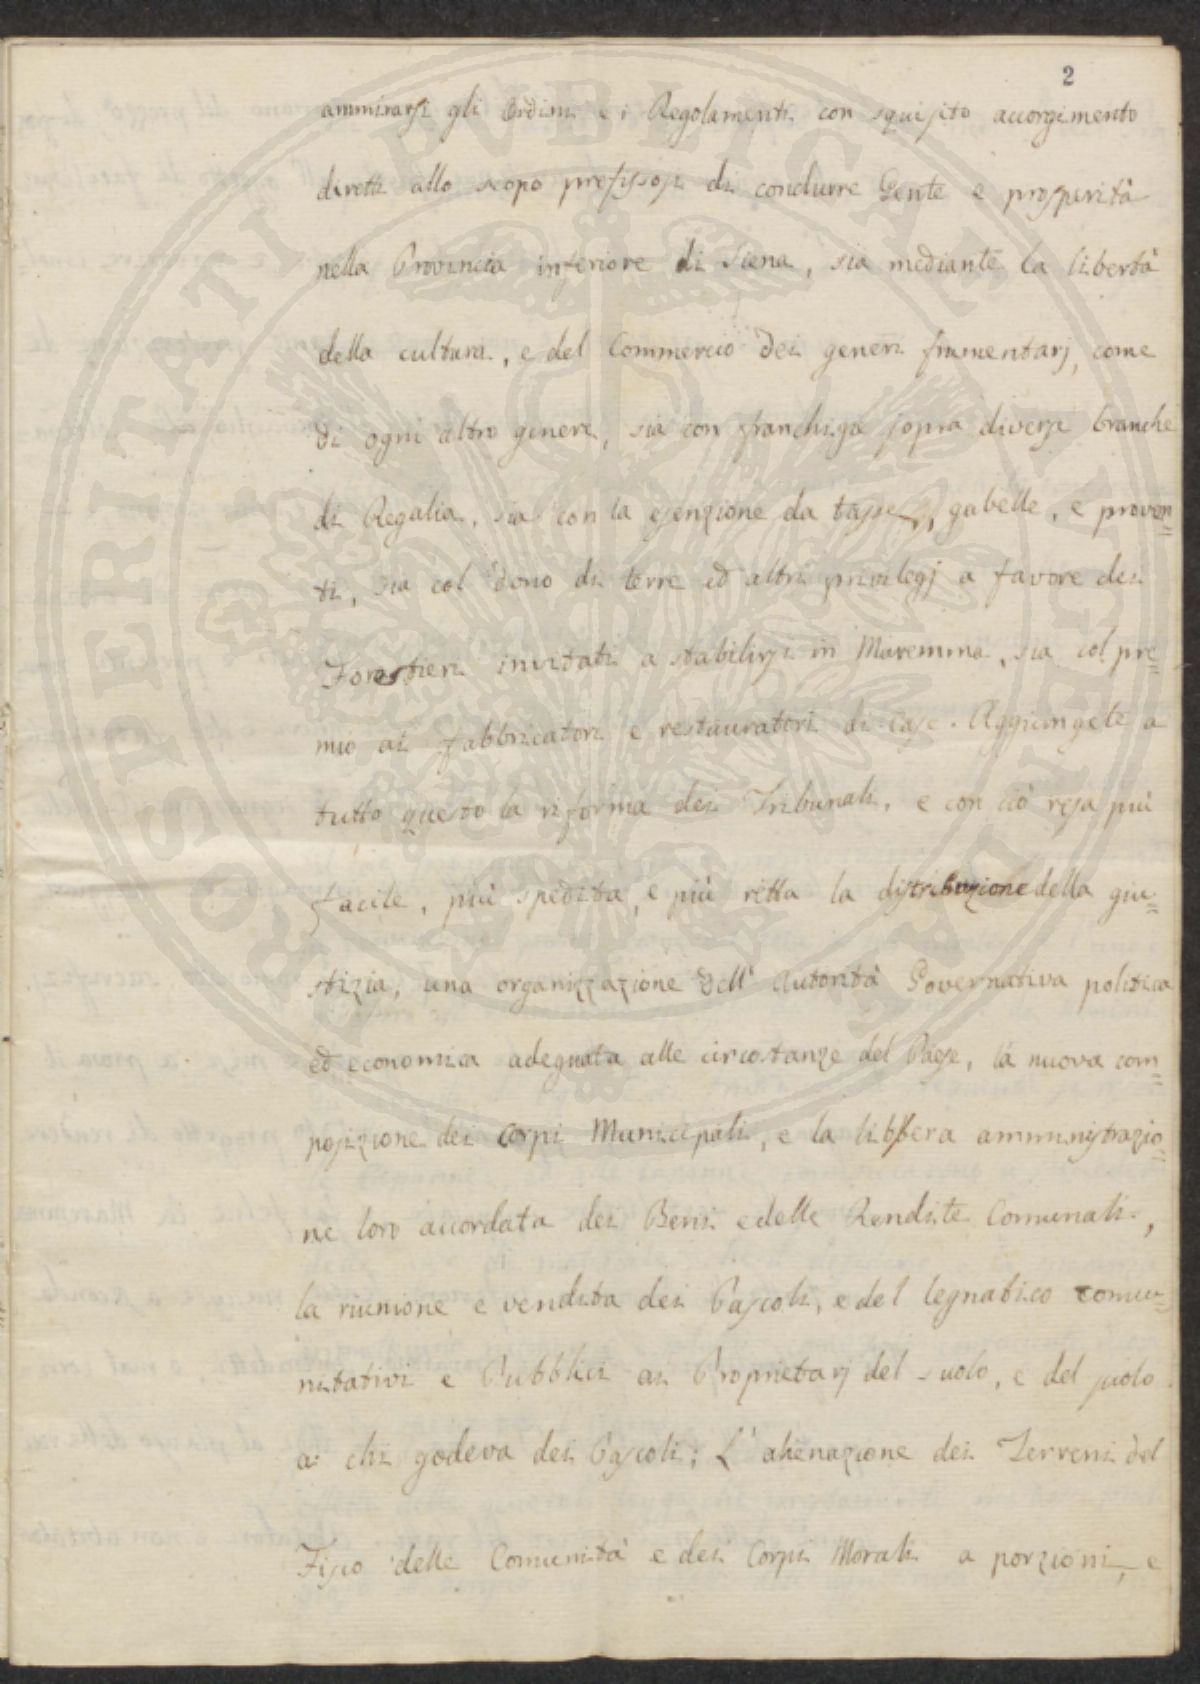 2
ammirarsi gli Ordini e i Regolamenti con squisito accorgimento
diretti allo scopo prefissosi di condurre Gente e prosperità
nella Provincia inferiore di Siena, sia mediante la libertà
della cultura, e del Commercio dei generi frumentarj, come
di ogni altro genere, sia con franchigia sopra diverse branche
di Regalia, sia con la esenzione da tasse, gabelle, e proven=
ti, sia col dono di terre ed altri privilegj a favore dei
Forestieri invitati a stabilirsi in Maremma, sia col pre=
mio ai fabbricatori e restauratori di Case. Aggiungete a
tutto questo la riforma dei Tribunali, e con ciò resa più
facile, più spedita, e più retta la distribuzione della giu=
stizia, una organizzazione dell' Autorità Governativa politica
ed economica adeguata alle circostanze del Paese, la nuova com=
posizione dei Corpi Municipali, e la libera amministrazio=
ne loro accordata dei Beni e delle Rendite Comunali,
la riunione e vendita dei Pascoli, e del legnatico comu=
nitativi e Pubblici ai Proprietarj del suolo, e del suolo
a chi godeva dei Pascoli; L' alienazione dei Terreni del
Fisco delle Comunità e dei Corpi Morali a porzioni, e
PROSPERITATI PVBLICAE AVGENDAE